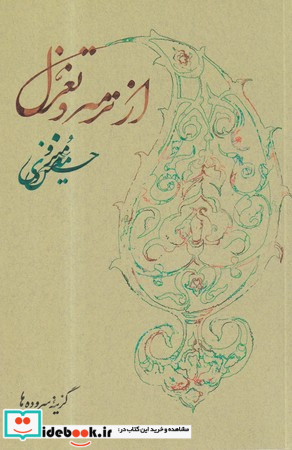 از ترمه و تغزل
حسین منزوی
گزینه سروده ها
مشاهده و خرید این کتاب در:
idebook.ir